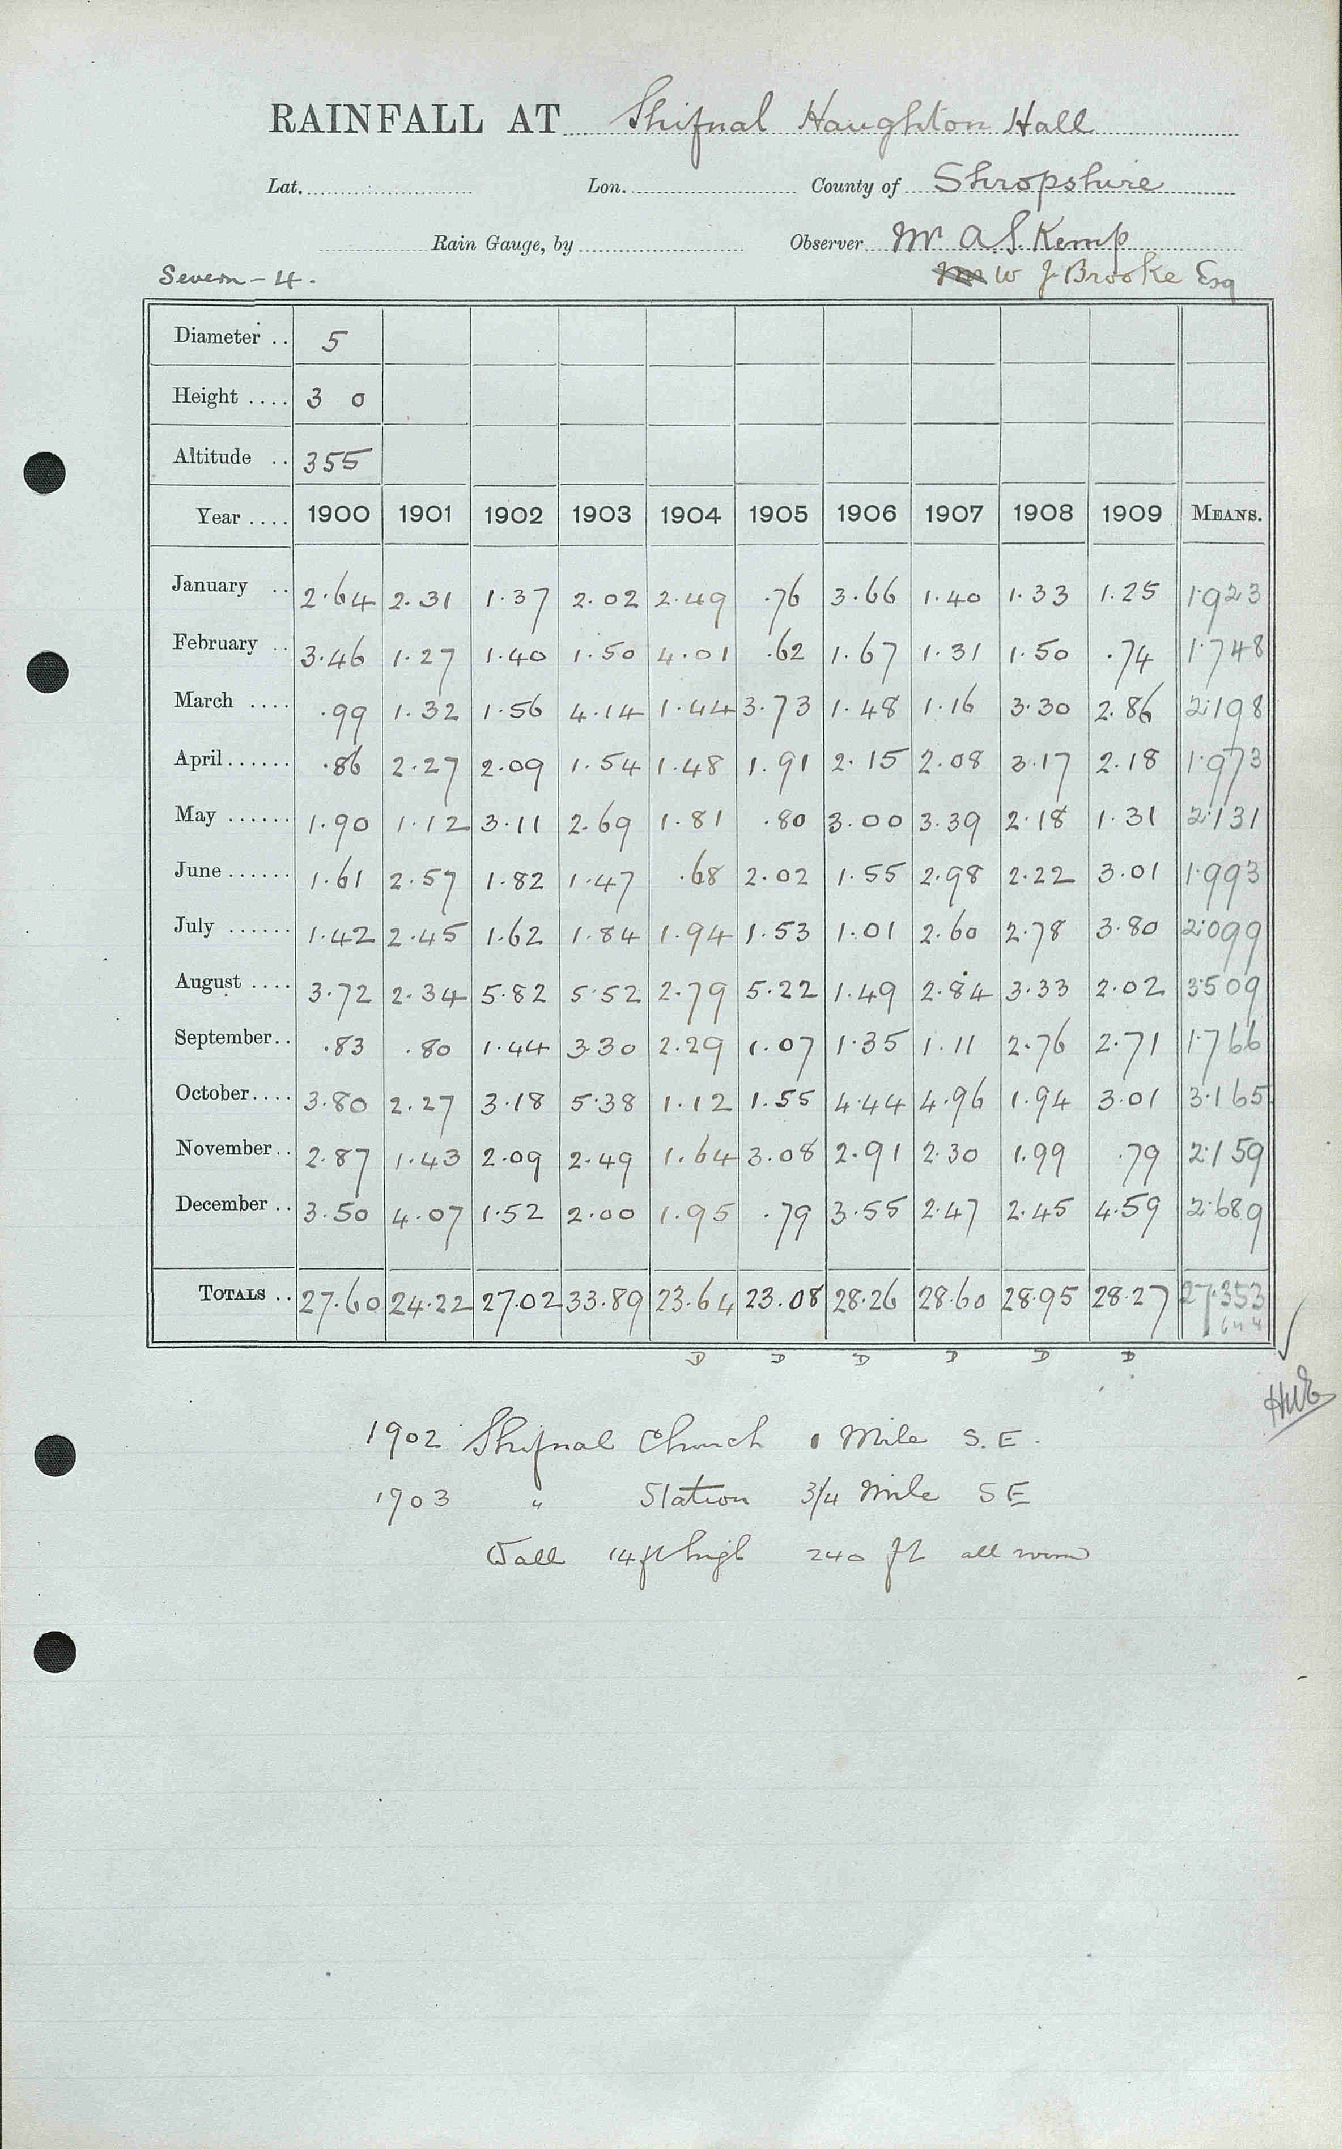 RAINFALL AT Shifnal Haughton Hall
Lat. Lon. County of Shropshire
Rain Gauge, by Observer Mr A. S. Kemp
Severn - 4. W J Brooke Esq
Diameter .. 5
Height .... 3 0
Altitude .. 355
Year .... 1900 1901 1902 1903 1904 1905 1906 1907 1908 1909 MEANS.
January .. 2.64 2.31 1.37 2.02 2.49 .76 3.66 1.40 1.33 1.25 1.923
February .. 3.46 1.27 1.40 1.50 4.01 .62 1.67 1.31 1.50 .74 1.748
March .... .99 1.32 1.56 4.14 1.44 3.73 1.48 1.16 3.30 2.86 2.198
April ...... .86 2.27 2.09 1.54 1.48 1.91 2.15 2.08 3.17 2.18 1.973
May ...... 1.90 1.12 3.11 2.69 1.81 .80 3.00 3.39 2.18 1.31 2.131
June ...... 1.61 2.57 1.82 1.47 .68 2.02 1.55 2.98 2.22 3.01 1.993
July ...... 1.42 2.45 1.62 1.84 1.94 1.53 1.01 2.60 2.78 3.80 2.099
August .... 3.72 2.34 5.82 5.52 2.79 5.22 1.49 2.84 3.33 2.02 3.509
September .. .83 .80 1.44 3.30 2.29 1.07 1.35 1.11 2.76 2.71 1.766
October .... 3.80 2.27 3.18 5.38 1.12 1.55 4.44 4.96 1.94 3.01 3.165
November .. 2.87 1.43 2.09 2.49 1.64 3.08 2.91 2.30 1.99 .79 2.159
December .. 3.50 4.07 1.52 2.00 1.95 .79 3.55 2.47 2.45 4.59 2.689
TOTALS .. 27.60 24.22 27.02 33.89 23.64 23.08 28.26 28.60 28.95 28.27 27.353
D D D D D D
1902 Shifnal Church 1 Mile S.E.
1903 " Station 3/4 Mile SE
Wall 14 ft high 240 ft all round